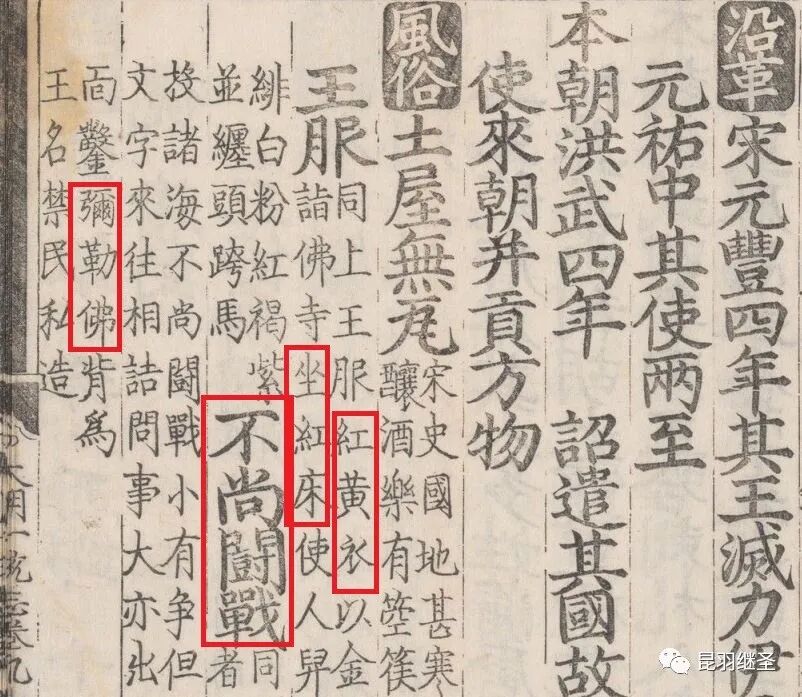 沿革宋元豐四年其王滅力伊
元祐中其使兩至
本朝洪武四年 詔遣其國故
使來朝并貢方物
風俗土屋無瓦宋史國地甚寒
釀酒樂有箜篌
王服同上王服紅黃衣以金
詣佛寺坐紅床使人舁
緋白粉紅褐紫
並纏頭跨馬
不尚闘戰同
者
投諸海不尚闘戰小有爭但
文字來往相詰問事大亦出
面鑿彌勒佛背為
王名禁民私造
大明一統志卷九
昆羽继圣